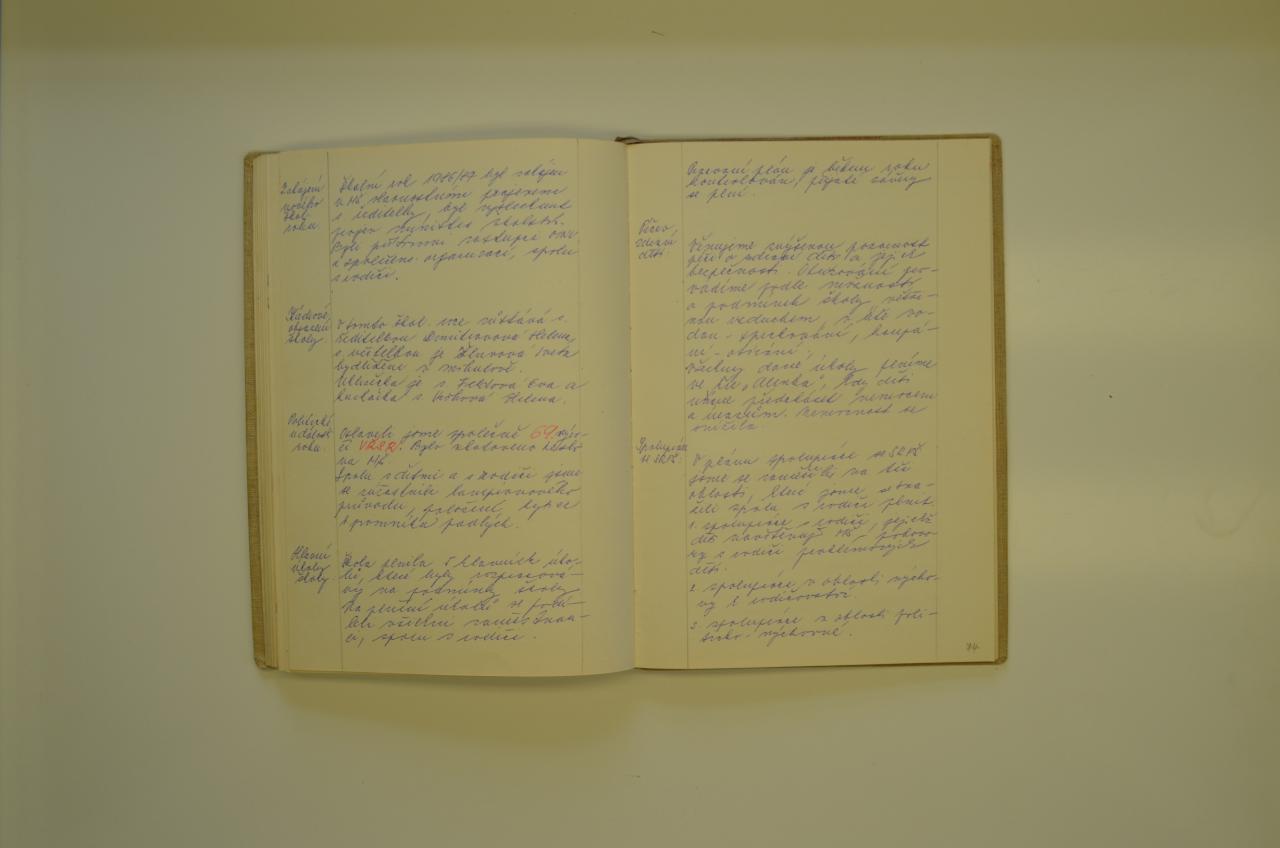 Zahájení
nového
škol.
roku.
Školní rok 1986/87 byl zahájen
v MŠ slavnostním projevem
s. ředitelky, byl vyslechnut
projev ministra školství.
Byli přítomni zástupci
a společens. organizací, spolu
s rodiči.
Kádrové
obsazení
školy.
V tomto škol. roce zůstává s.
ředitelkou Helena,
s. učitelkou je Iveta
bydlištěm v
Uklízečka je s. Eva a
kuchařka s. Helena.
Politické
události
roku.
Oslavili jsme společně 69. výro-
čí VŘSR. Bylo zhotoveno
na MŠ.
Spolu s dětmi a s rodiči jsme
se zúčastnili lampionového
průvodu, položení kytice
k pomníku padlých.
Hlavní
úkoly
školy.
Škola plnila 5 hlavních úko-
lů, které byly rozpracová-
ny na podmínky školy.
Na plnění úkolů se podí-
leli všichni zaměstnan-
ci, spolu s rodiči.
Pracovní plán je během roku
kontrolován, přijaté závěry
se plní.
Péče o
zdraví
dětí.
Věnujeme zvýšenou pozornost
péči o zdraví dětí a jejich
bezpečnosti. Otužování pro-
vádíme podle možností
a podmínek školy věku-
vzduchem, v létě vo-
dou - sprchování, koupá-
ní - otírání.
Všechny dané úkoly plníme
ve hře "Alenka", kdy děti
učíme předcházet nemocem
a úrazům. Nemocnost se
snížila.
Spolupráce
se SRPŠ.
V plánu spolupráce se SRPŠ
jsme se zaměřili na tři
oblasti, které jsme se sna-
žili spolu s rodiči plnit.
1. spolupráce s rodiči, jejichž
děti navštěvují MŠ, pohovo-
ry s rodiči problémových
dětí.
2. spolupráce v oblasti výcho-
vy k rodičovství.
3. spolupráce v oblasti poli-
ticko-výchovné.
74